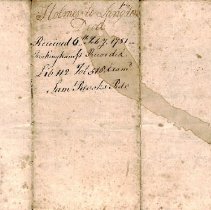 Holmes to Langdon
Deed
Received 6th Feby 1781
Rockingham ss Recorded
Lib 112 Fol 518 &
Saml Brooks Recr